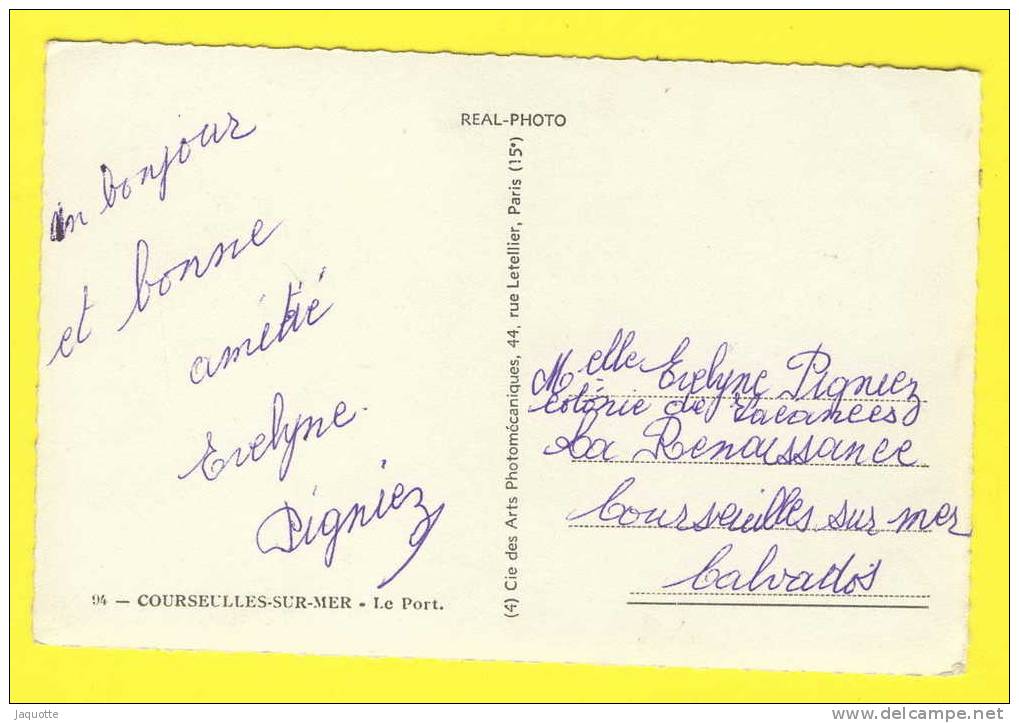 un bonjour
et bonne
amétié
Evelyne
Pigniez
94 — COURSEULLES-SUR-MER - Le Port.
REAL-PHOTO
(4) Cie des Arts Photomécaniques, 44, rue Letellier, Paris (15e)
Melle Evelyne Pigniez
Colonie de vacances
La Renaissance
Courseuilles sur mer
Calvados
Jaquotte
delcampe.net